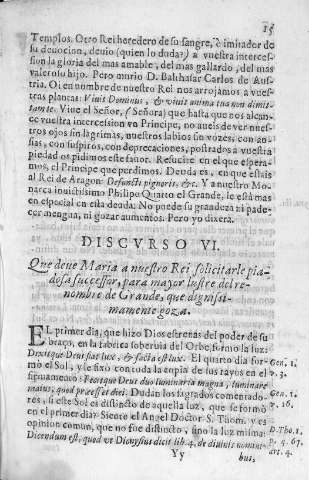 15
Templos. Otro Rei heredero de su sangre, è imitador de
su deuocion, deuio (quien lo duda?) a vuestra interces-
sion la gloria del mas amable, del mas gallardo, del mas
valeroso hijo. Pero murio D. Balthasar Carlos de Aus-
tria. Oi en nombre de nuestro Rei nos arrojamos a vues-
tras plantas: Viuit Dominus, & viuit anima tua non dimit-
tamte. Viue el Señor, (Señora) que hasta que nos alcan-
ce vuestra intercession vn Principe, no aueis de ver nues-
tros ojos sin lagrimas, nuestros labios sin vozes, con an-
sias, con suspiros, con deprecaciones, postrados a vuestra
piedad os pidimos este fauor. Resucite en el que espera-
mos, el Principe que perdimos. Deuda es, en que estais
al Rei de Aragon: Defuncti pignoris, &c. Y a nuestro Mo-
narca inuictissimo Philipe Quarto el Grande, le està mas
en especial en esta deuda. No puede su grandeza ni pade-
cer mengua, ni gozar aumentos. Pero yo dixera.
DISCVRSO VI.
Que deue Maria a nuestro Rei solicitarle pia-
dosa successor, para mayor lustre del re-
nombre de Grande, que dignissi-
mamente goza.
EL primer dia, que hizo Dios estrenas del poder de su
braço, en la fabrica soberuia del Orbe, formo la luz:
Dixitque Deus fiat lux, & facta est lux. El quarto dia for-
mò el Sol, y le fixo con toda la copia de sus rayos en el fir-
mamento: Fecitque Deus duo luminaria magna, luminare
maius, quod præesset diei. Dudan los sagrados comentado-
res, si este Sol es distincto de aquella luz, que se formò
en el primer dia? Siente el Angel Doctor S. Thom. y es
opinion comun, que no fue distincto, sino la luz misma:
Dicendum est, quod vt Dionysius dicit lib. 4. de diuinis nomini-
Gen. 1.
v. 3.
Gen. 1.
v. 16.
D. Tho. 1.
p. q. 67.
art. 4.
Yy
bus,